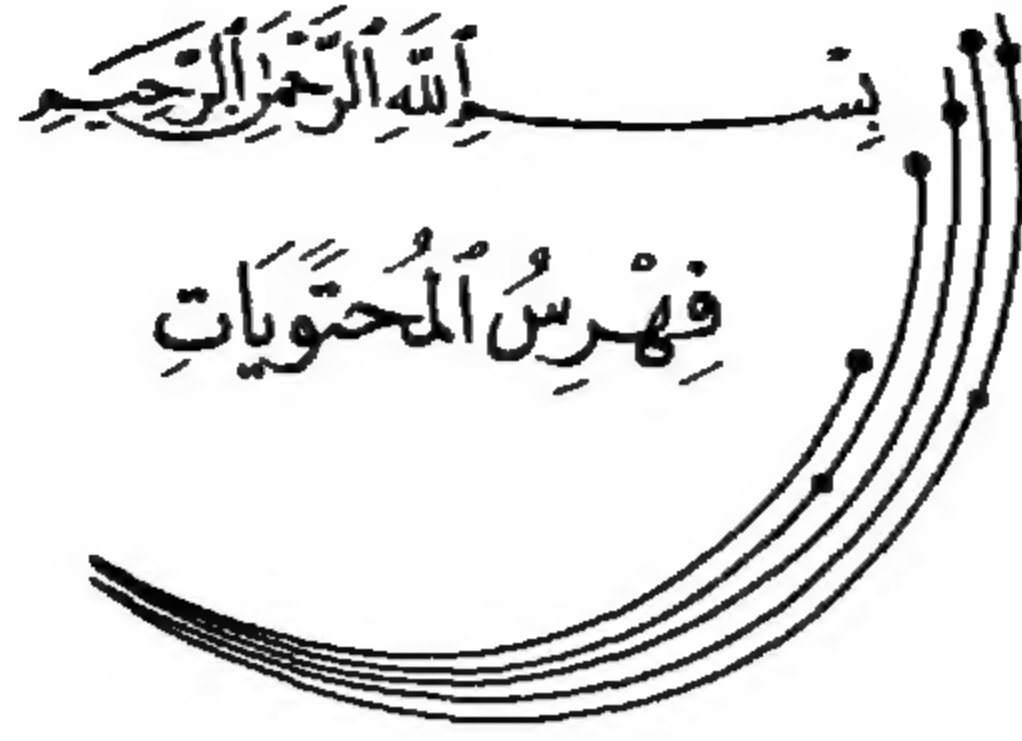 بِسْــــمِ ٱللَّهِ ٱلرَّحْمَٰنِ ٱلرَّحِيمِ
فِهْرِسُ ٱلْمُحْتَوَيَاتِ